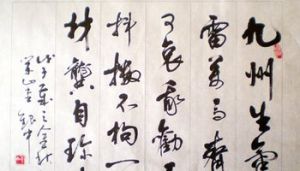 九州生氣
雷萬馬齊
可哀我勸
抖擻不拘一
材龔自珍
戊子